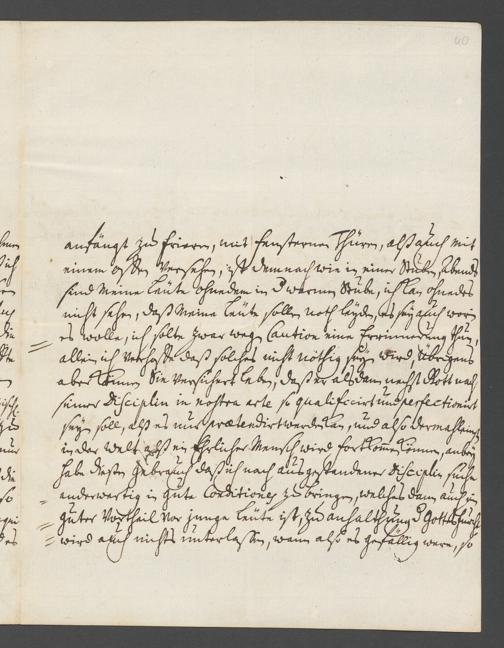 40
anfängt zu frieren, mit fensteren Thüren, alß auch mit
einem offen versehen, ist demnach wie in einer Stuben, abends
sind Meine leüte ohnedem in D warmen Stube, ich kan ohnedes
nicht sehen, daß Meine leüte sollen noth leÿden, es seÿ auch worin
es wolle, ich solte zwar wegen Caution eine Erinnerung thun,
allein ich verhoffe daß solches nicht nöthig seÿn wird, übrigens
aber können Sie versichert leben, daß er alsdann nechst Gott nach
seiner Disciplin in nostra arte so qualificirt und perfectionirt
seÿn soll, alß es nur prætendirt werden kan, und also dermahleinst
in der Welt alß ein Ehrlicher Mensch wird fortkommen können, anbeÿ
habe diesen gebrauch daß ich nach ausgestandener Disciplin suche
anderwertig in gute Conditiones zu bringen, welches dann auch ein
guter Vortheil vor junge leüte ist, zu anhaltung D Gottesfurcht
wird auch nichts unterlassen, wann also es gefällig were, so